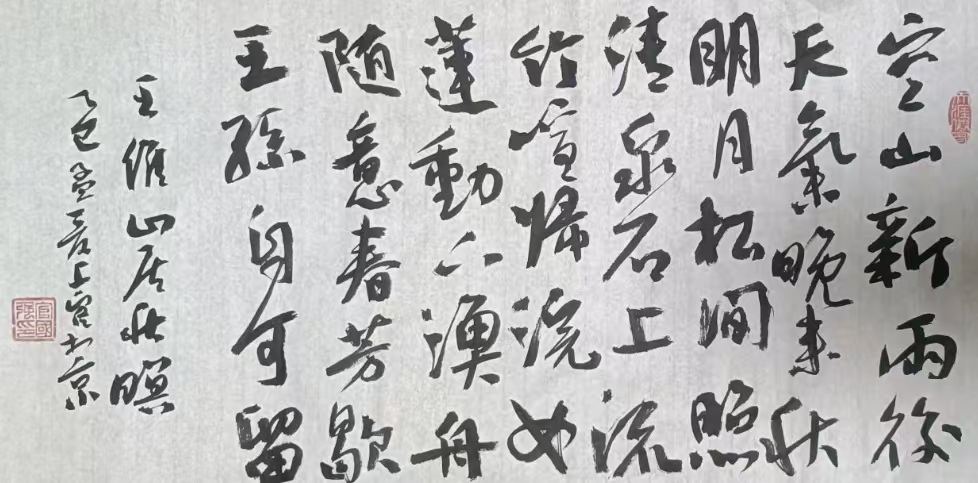 空山新雨後
天氣晚来秋
明月松間照
清泉石上流
竹喧歸浣女
蓮動下漁舟
随意春芳歇
王孫自可留
王維山居秋暝
乙巳孟夏上官於京